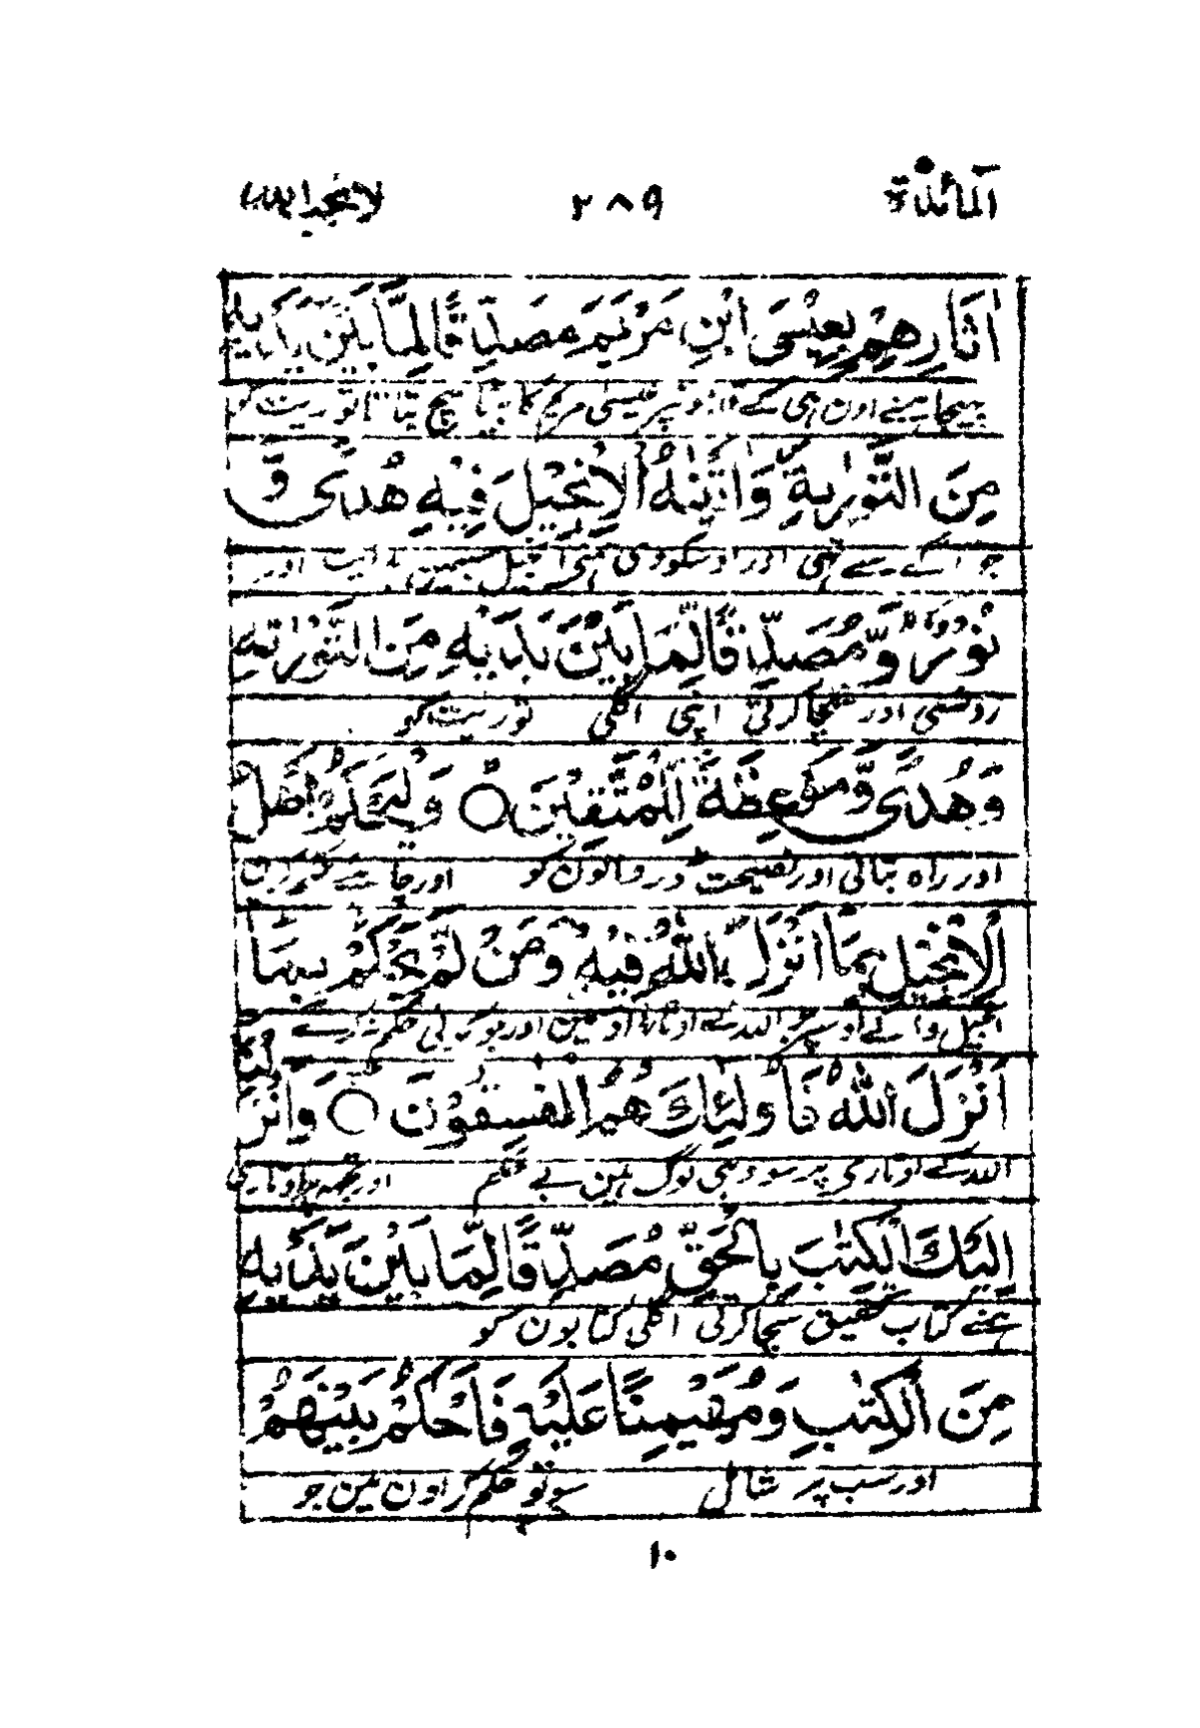 المائدة ۲۸۹ لا يحب الله
اٰثَارِهِمْ بِعِيْسَى ابْنِ مَرْيَمَ مُصَدِّقًا لِّمَا بَيْنَ يَدَيْهِ
اون ہی کے پر عیسی مریم کا بیٹا سچ بتاتا توریت کو
مِنَ التَّوْرٰىةِ وَاٰتَيْنٰهُ الْاِنْجِيْلَ فِيْهِ هُدًى وَّ
جو آگے سے تھی اور اوسکو دی ہمنے انجیل جسمین ہدایت اور
نُوْرٌ وَّمُصَدِّقًا لِّمَا بَيْنَ يَدَيْهِ مِنَ التَّوْرٰىةِ
روشنی اور سچا کرتی اپنی اگلی توریت کو
وَهُدًى وَّمَوْعِظَةً لِّلْمُتَّقِيْنَ ○ وَلْيَحْكُمْ اَهْلُ
اور راہ بتاتی اور نصیحت ڈر والون کو اور چاہئے حکم کرین
الْاِنْجِيْلِ بِمَا اَنْزَلَ اللّٰهُ فِيْهِ وَمَنْ لَّمْ يَحْكُمْ بِمَا
انجیل والے اوسپر جو اللہ نے اوتارا اوسمین اور جو کوئی حکم نہ کرے
اَنْزَلَ اللّٰهُ فَاُولٰٓئِكَ هُمُ الْفٰسِقُوْنَ ○ وَاَنْزَلْنَا
اللہ کے اوتارے پر سو وہی لوگ ہین بے حکم اور تجھہ پر اوتاری
اِلَيْكَ الْكِتٰبَ بِالْحَقِّ مُصَدِّقًا لِّمَا بَيْنَ يَدَيْهِ
ہمنے کتاب تحقیق سچا کرتی اگلی کتابون کو
مِنَ الْكِتٰبِ وَمُهَيْمِنًا عَلَيْهِ فَاحْكُمْ بَيْنَهُمْ
اور سب پر شامل سو تو حکم کر اون مین جو
۱۰